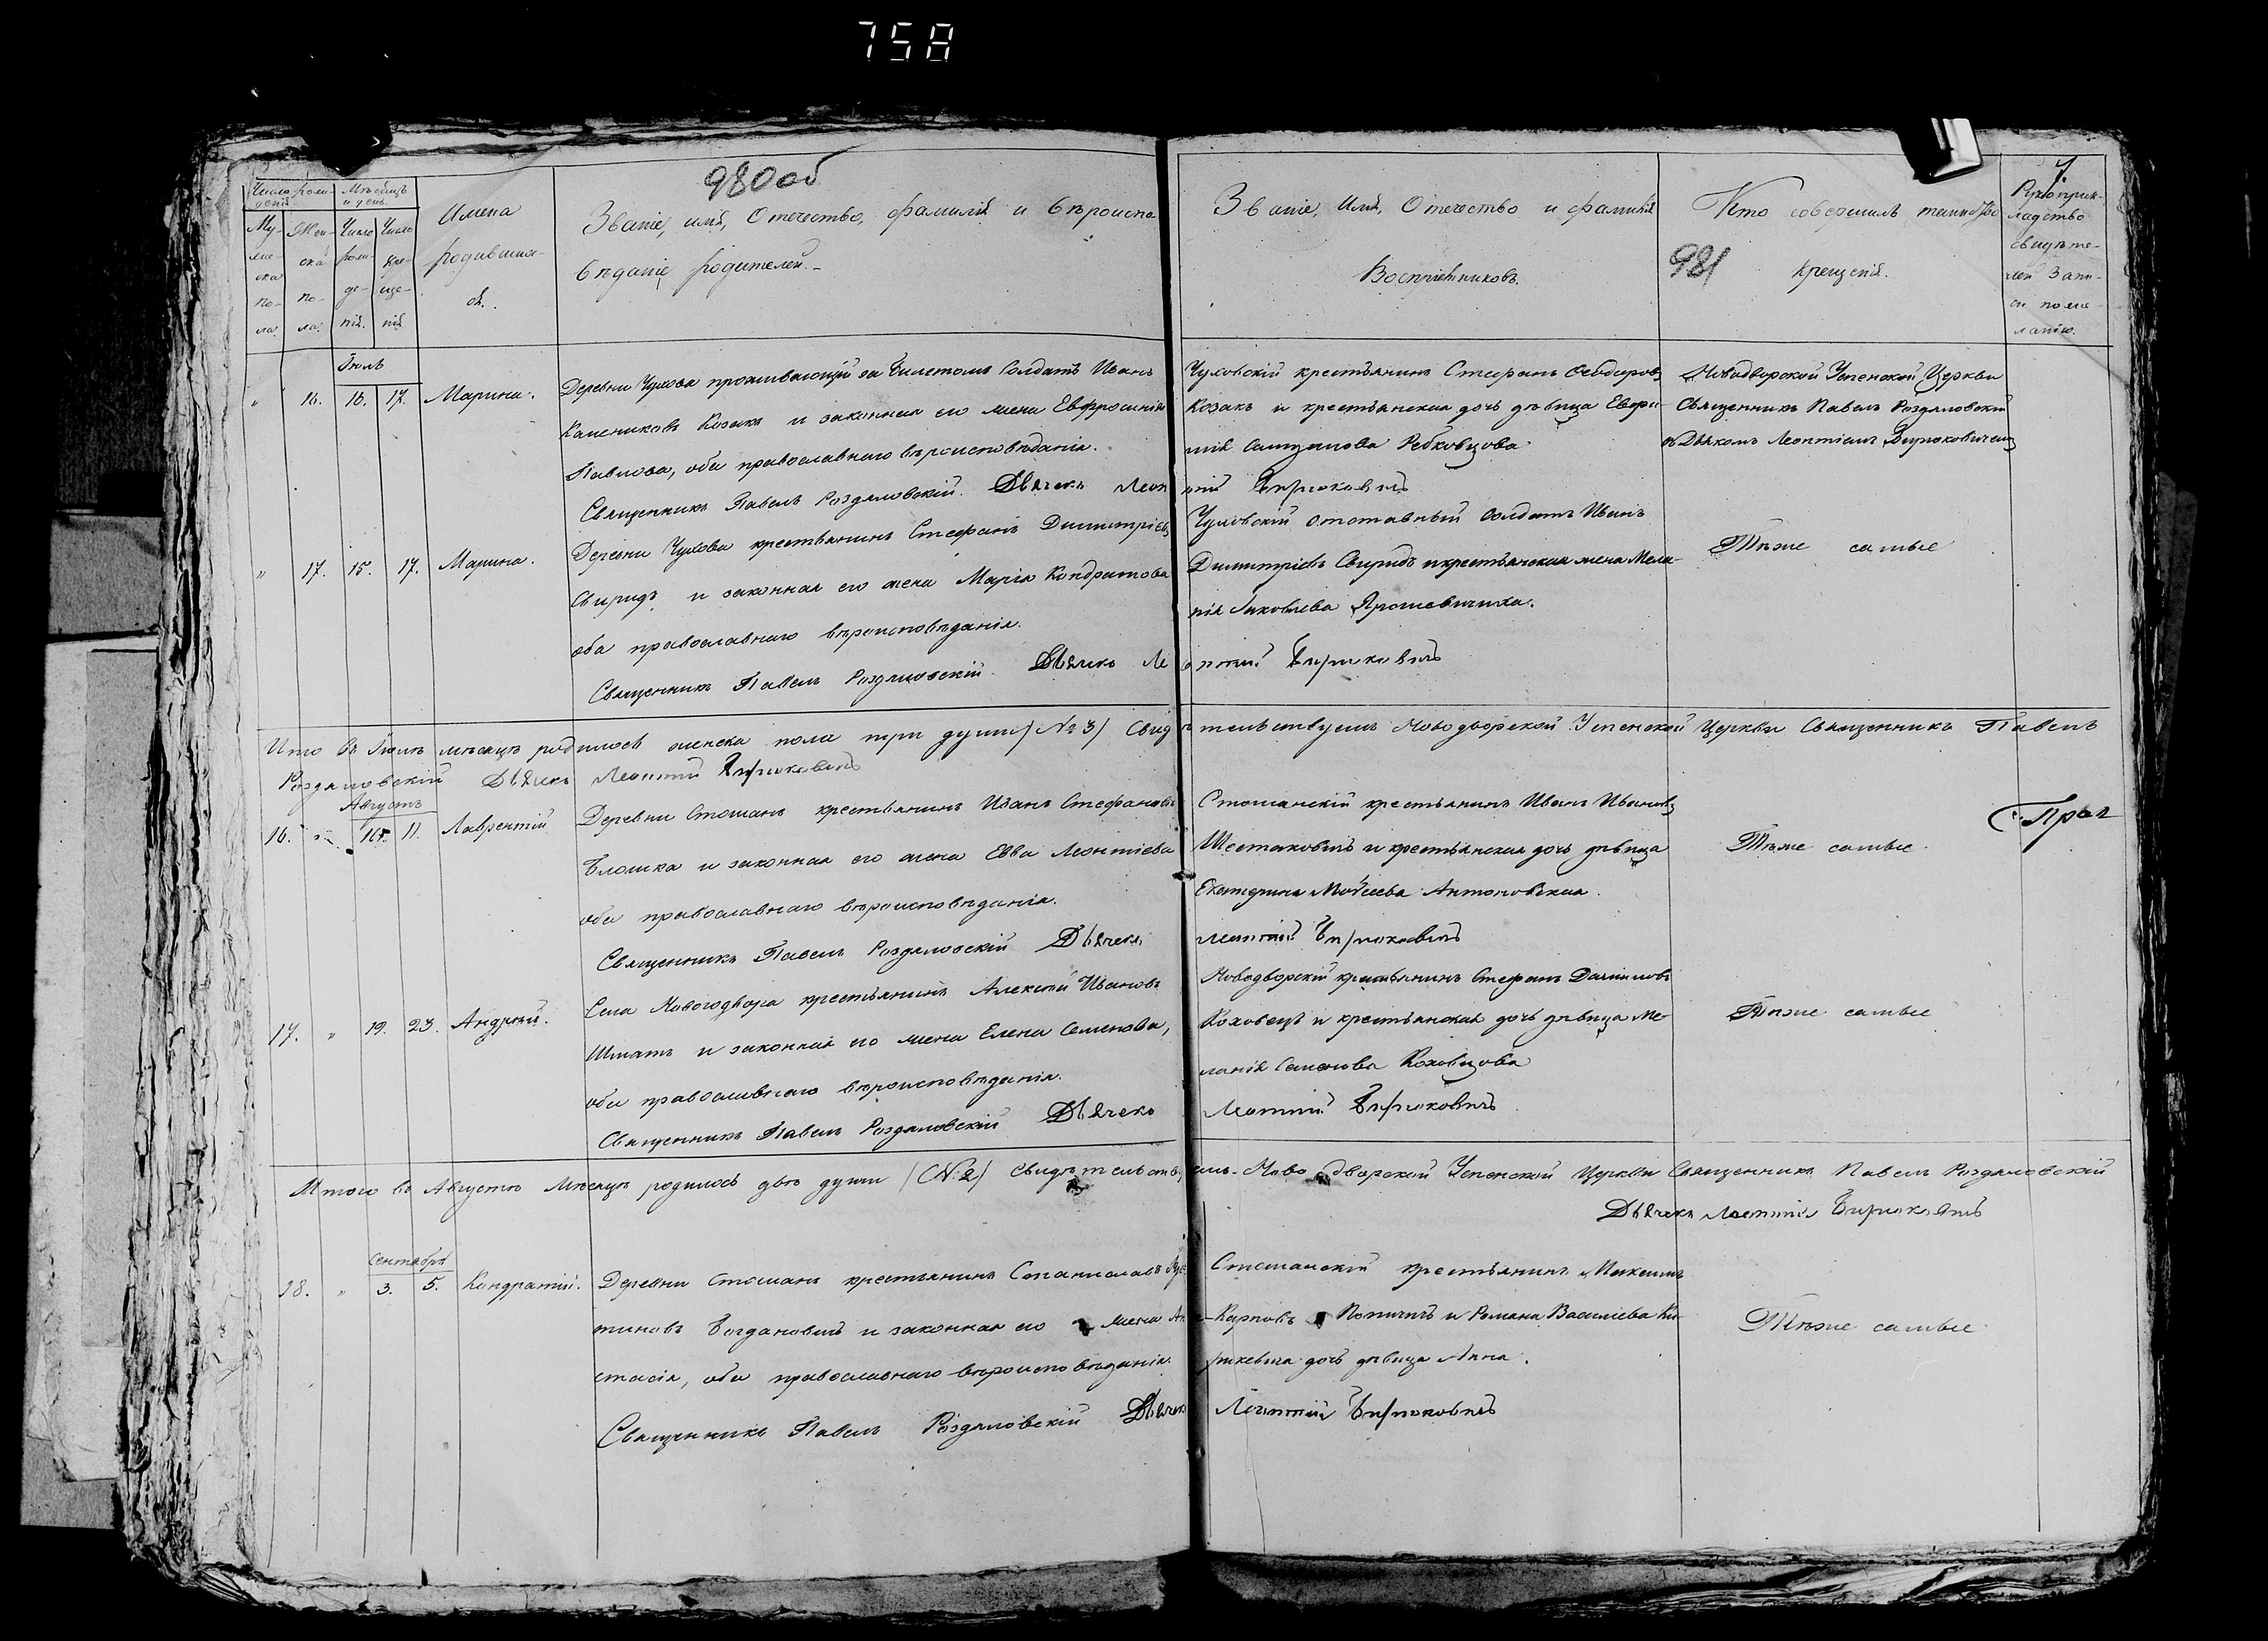 758
980 об
Число рождений.
Мѣсяцъ и день.
Мужеска пола.
Женска пола.
Число рождения.
Число крещенія.
Имена родившихся.
Званіе, имя, Отечество, фамилія и вѣроиспо-
вѣданіе родителей.
Званіе, Имя, Отечество и фамилія
Воспріемниковъ.
981
Кто совершилъ таинство
крещенія.
Рукоприкладство свидѣтелей записи по желанію.
Іюль
" 16. 16. 17. Марина.
Деревни Чухова проживающій за билетомъ Солдатъ Иванъ
Козакъ и законная его жена Евфросинія
Павлова, оба православнаго вѣроисповѣданія.
Священникъ Павелъ Роздяловскій. Дьячекъ Леон
Чуховскій крестьянинъ Стефанъ Ѳеодоровъ
Козакъ и крестьянская дочь дѣвица
Новодворской Успенской Церкви
Священникъ Павелъ Роздяловскій
съ Дьячкомъ Леонтіемъ Бирюковичемъ
тій Бирюковичъ
" 17. 15. 17. Марина.
Деревни Чухова крестьянинъ Стефанъ Димитріевъ
Свиридъ и законная его жена Марія Кондратова
оба православнаго вѣроисповѣданія.
Священникъ Павелъ Роздяловскій. Дьячекъ Ле
Чуховскій отставный солдатъ Иванъ
Димитріевъ Свиридъ и крестьянская жена Мела-
нія Яковлева Ярошевичиха.
онтій Бирюковичъ
Тѣже самые
Итого въ Іюлѣ мѣсяцѣ родилось женска пола три души /№ 3/ Свидѣтельствуетъ Новодворской Успенской Церкви Священникъ Павелъ
Роздяловскій Дьячекъ Леонтій Бирюковичъ
Августъ
16. " 10. 11. Лаврентій
Деревни Стошанъ крестьянинъ Иванъ Стефановъ
и законная его жена Евва Леонтіева
оба православнаго вѣроисповѣданія.
Священникъ Павелъ Роздяловскій Дьячекъ
Стошанскій крестьянинъ Иванъ Ивановъ
Шестаковичъ и крестьянская дочь дѣвица
Екатерина Моѵсеева Антоновская.
Леонтій Бирюковичъ
Тѣже самые.
17. " 19. 23. Андрей.
Села Новогодвора крестьянинъ Алексѣй Ивановъ
Шматъ и законная его жена Елена Семенова,
оба православнаго вѣроисповѣданія.
Священникъ Павелъ Роздяловскій Дьячекъ
Новодворскій крестьянинъ Стефанъ Даниловъ
Коховецъ и крестьянская дочь дѣвица Ме-
ланія Семенова Коховцова
Леонтій Бирюковичъ
Тѣже самые
Итого въ Августѣ Мѣсяцѣ родилось двѣ души /№ 2/ Свидѣтельствуетъ Новодворской Успенской Церкви Священникъ Павелъ Роздяловскій
Дьячекъ Леонтій Бирюковичъ
Сентябрь
18. " 3. 5. Кондратій.
Деревни Стошанъ крестьянинъ Станиславъ
тиновъ Богдановичъ и законная его жена Ана-
стасія, оба православнаго вѣроисповѣданія.
Священникъ Павелъ Роздяловскій Дьячекъ
Стошанскій крестьянинъ Максимъ
Карповъ и Романа Василіева
дочь дѣвица Анна.
Леонтій Бирюковичъ
Тѣже самые.